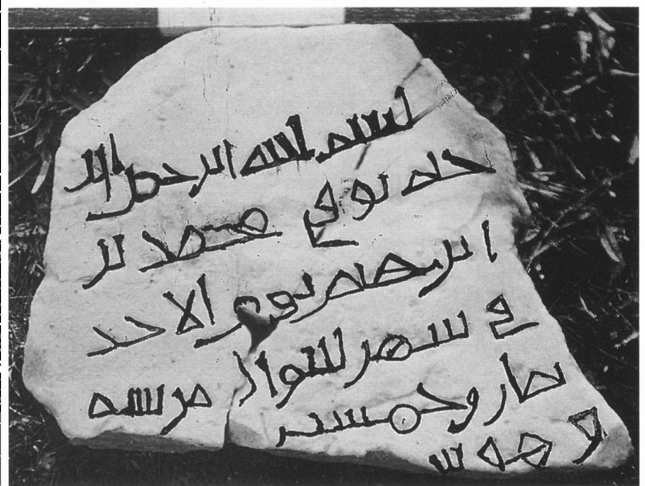 بسم الله الرحمن الر
حيم توفي محمد بن
ابرهيم يوم الاحد
في شهر شوال من سنة
ثمان وخمسين